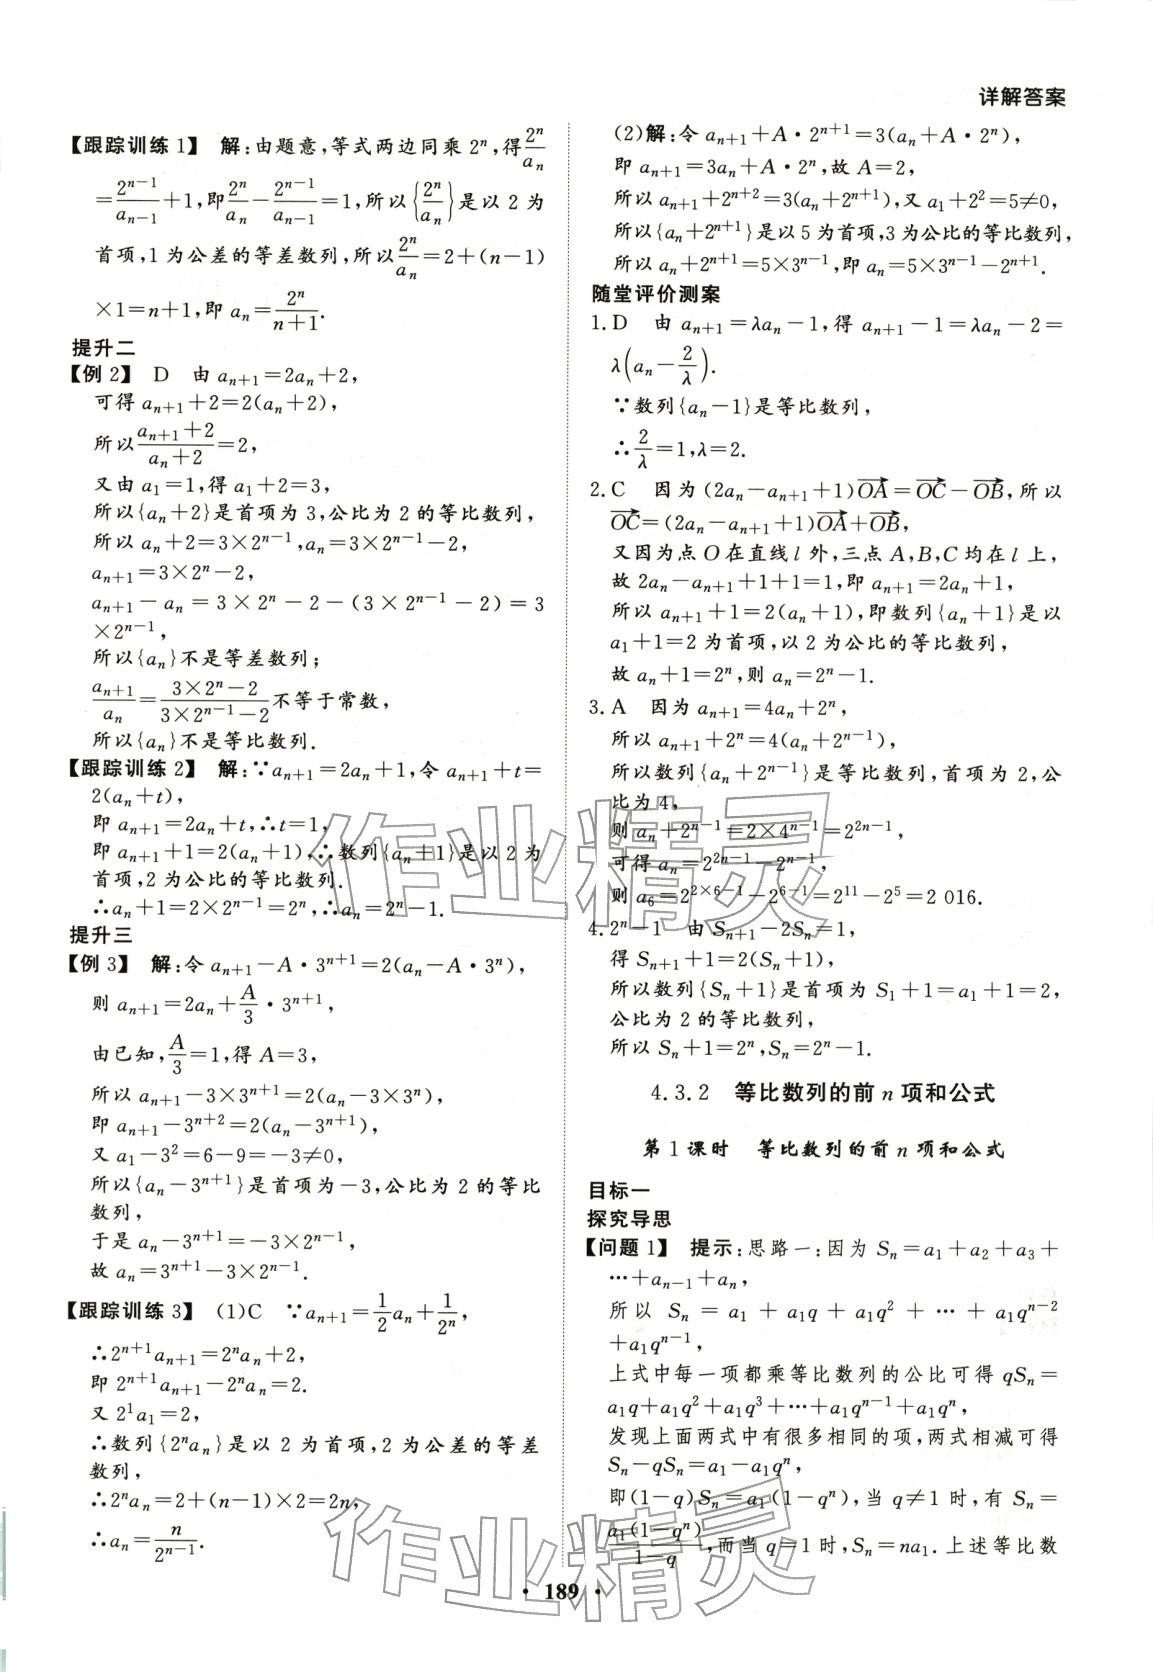 详解答案
【跟踪训练1】 解:由题意,等式两边同乘 2ⁿ,得 2ⁿ/aₙ
=2ⁿ⁻¹/aₙ₋₁+1,即 2ⁿ/aₙ-2ⁿ⁻¹/aₙ₋₁=1,所以{2ⁿ/aₙ}是以 2 为
首项,1 为公差的等差数列,所以 2ⁿ/aₙ=2+(n-1)
×1=n+1,即 aₙ=2ⁿ/(n+1).
提升二
【例 2】 D 由 aₙ₊₁=2aₙ+2,
可得 aₙ₊₁+2=2(aₙ+2),
所以 (aₙ₊₁+2)/(aₙ+2)=2,
又由 a₁=1,得 a₁+2=3,
所以{aₙ+2}是首项为 3,公比为 2 的等比数列,
所以 aₙ+2=3×2ⁿ⁻¹,aₙ=3×2ⁿ⁻¹-2,
aₙ₊₁=3×2ⁿ-2,
aₙ₊₁-aₙ=3×2ⁿ-2-(3×2ⁿ⁻¹-2)=3
×2ⁿ⁻¹,
所以{aₙ}不是等差数列;
aₙ₊₁/aₙ=(3×2ⁿ-2)/(3×2ⁿ⁻¹-2)不等于常数,
所以{aₙ}不是等比数列.
【跟踪训练2】 解:∵aₙ₊₁=2aₙ+1,令 aₙ₊₁+t=
2(aₙ+t),
即 aₙ₊₁=2aₙ+t,∴t=1,
即 aₙ₊₁+1=2(aₙ+1),∴数列{aₙ+1}是以 2 为
首项,2 为公比的等比数列.
∴aₙ+1=2×2ⁿ⁻¹=2ⁿ,∴aₙ=2ⁿ-1.
提升三
【例 3】 解:令 aₙ₊₁-A·3ⁿ⁺¹=2(aₙ-A·3ⁿ),
则 aₙ₊₁=2aₙ+A/3·3ⁿ⁺¹,
由已知,A/3=1,得 A=3,
所以 aₙ₊₁-3×3ⁿ⁺¹=2(aₙ-3×3ⁿ),
即 aₙ₊₁-3ⁿ⁺²=2(aₙ-3ⁿ⁺¹),
又 a₁-3²=6-9=-3≠0,
所以{aₙ-3ⁿ⁺¹}是首项为-3,公比为 2 的等比
数列,
于是 aₙ-3ⁿ⁺¹=-3×2ⁿ⁻¹,
故 aₙ=3ⁿ⁺¹-3×2ⁿ⁻¹.
【跟踪训练 3】 (1)C ∵aₙ₊₁=1/2aₙ+1/2ⁿ,
∴2ⁿ⁺¹aₙ₊₁=2ⁿaₙ+2,
即 2ⁿ⁺¹aₙ₊₁-2ⁿaₙ=2.
又 2¹a₁=2,
∴数列{2ⁿaₙ}是以 2 为首项,2 为公差的等差
数列,
∴2ⁿaₙ=2+(n-1)×2=2n,
∴aₙ=n/2ⁿ⁻¹.
(2)解:令 aₙ₊₁+A·2ⁿ⁺¹=3(aₙ+A·2ⁿ),
即 aₙ₊₁=3aₙ+A·2ⁿ,故 A=2,
所以 aₙ₊₁+2ⁿ⁺²=3(aₙ+2ⁿ⁺¹),又 a₁+2²=5≠0,
所以{aₙ+2ⁿ⁺¹}是以 5 为首项,3 为公比的等比数列,
所以 aₙ+2ⁿ⁺¹=5×3ⁿ⁻¹,即 aₙ=5×3ⁿ⁻¹-2ⁿ⁺¹.
随堂评价测案
1.D 由 aₙ₊₁=λaₙ-1,得 aₙ₊₁-1=λaₙ-2=
λ(aₙ-2/λ).
∵数列{aₙ-1}是等比数列,
∴2/λ=1,λ=2.
2.C 因为 (2aₙ-aₙ₊₁+1)OA→=OC→-OB→,所以
OC→=(2aₙ-aₙ₊₁+1)OA→+OB→,
又因为点 O 在直线 l 外,三点 A,B,C 均在 l 上,
故 2aₙ-aₙ₊₁+1+1=1,即 aₙ₊₁=2aₙ+1,
所以 aₙ₊₁+1=2(aₙ+1),即数列{aₙ+1}是以
a₁+1=2 为首项,以 2 为公比的等比数列,
故 aₙ+1=2ⁿ,则 aₙ=2ⁿ-1.
3.A 因为 aₙ₊₁=4aₙ+2ⁿ,
所以 aₙ₊₁+2ⁿ=4(aₙ+2ⁿ⁻¹),
所以数列{aₙ+2ⁿ⁻¹}是等比数列,首项为 2,公
比为 4,
则 aₙ+2ⁿ⁻¹=2×4ⁿ⁻¹=2²ⁿ⁻¹,
可得 aₙ=2²ⁿ⁻¹-2ⁿ⁻¹,
则 a₆=2²ˣ⁶⁻¹-2⁶⁻¹=2¹¹-2⁵=2 016.
4.2ⁿ-1 由 Sₙ₊₁-2Sₙ=1,
得 Sₙ₊₁+1=2(Sₙ+1),
所以数列{Sₙ+1}是首项为 S₁+1=a₁+1=2,
公比为 2 的等比数列,
所以 Sₙ+1=2ⁿ,Sₙ=2ⁿ-1.
4.3.2 等比数列的前 n 项和公式
第 1 课时 等比数列的前 n 项和公式
目标一
探究导思
【问题 1】 提示:思路一:因为 Sₙ=a₁+a₂+a₃+
…+aₙ₋₁+aₙ,
所以 Sₙ=a₁+a₁q+a₁q²+…+a₁qⁿ⁻²
+a₁qⁿ⁻¹,
上式中每一项都乘等比数列的公比可得 qSₙ=
a₁q+a₁q²+a₁q³+…+a₁qⁿ⁻¹+a₁qⁿ,
发现上面两式中有很多相同的项,两式相减可得
Sₙ-qSₙ=a₁-a₁qⁿ,
即(1-q)Sₙ=a₁(1-qⁿ),当 q≠1 时,有 Sₙ=
a₁(1-qⁿ)/(1-q),而当 q=1 时,Sₙ=na₁.上述等比数
· 189 ·
作业精灵
作业精灵